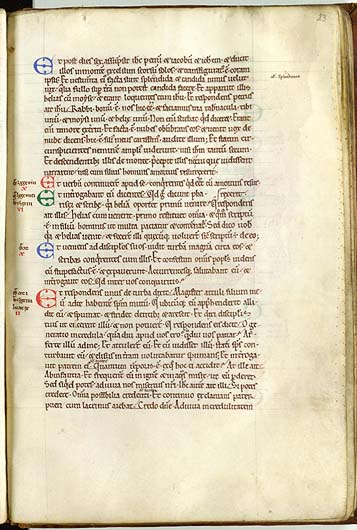 23
Et post dies sex assupsit ihc petru & iacobu & ioh'em & ducit
illos in monte excelsum seorsu solos & transfigurat' e coram
ipsis Et uestimta ei facta sunt splendida & candida nimis uelut
nix qlia fullo sup tra non potest candida facere Et apparuit illis
helias cu moyse & erant loquentes cum ihu Et respondens petrus
ait ihu Rabbi bonu e nos hic ee & faciamus tria tabnacula tibi
unu & moysi unu & helye unu Non eni sciebat qd diceret Erant
eni timore exterriti Et facta e nubes obumbrans eos & uenit uox de
nube dicens hic e fili' meus carissim' audite illum Et statim cir
cumspicientes nemine amplius uiderunt nisi ihm tantu secum
Et descendentib; illis de monte pcepit illis ne cui que uidissent
narrarent nisi cum filius hominis a mortuis resurrexerit
Et uerbu continuert apud se conqrentes qd eet cu a mortuis resur
Et interrogabant eu dicentes
sei & scribe q helia oporter primu uenire Qui respondens
ait illis Helias cum uenerit primo restituet omia & qm scriptu e
in filiu hominis ut multa patiatur & contempnat' Sed dico uob
qa & helias uenit & fecert illi quecuq; uoluert sic scriptu e de eo
Et ueniens ad discipulos suos uidit turba magna circa eos &
scribas conqrentes cum illis Et confestim omis popls uidens
eu stupefactus e & expauerunt Accurrentesq; salutabant eu &
interrogauit eos Quid inter uos conquiritis
Et respondens unus de turba dixit Magister attuli filium me
u ad te habente spm mutu Qui ubicuq; eu apphenderit alli
dit eu & spumat & stridet dentib; & arescit Et dixi discipulis
tuis ut eicerent illu & non potuert Qui respondens eis dicit O ge
neratio incredula qua diu apud uos ero qua diu uos patiar Af
ferte illu ad me Et attulert eu Et cu uidisset illu stati sps con
turbauit eu & elisus in tram uolutabatur spumans Et interroga
uit patrem ei Quantum tepris e ex quo hoc ei accidit At ille ait
Ab infantia Et frequent eu in igne & in aqas misit ut eu pderet
Sed siqd potes adiuua nos misertus nri Ihc aute ait illi Si potes
credere Omia possibilia credenti Et continuo exclamans pater
pueri cum lacrimis aiebat Credo dne Adiuua incredulitatem